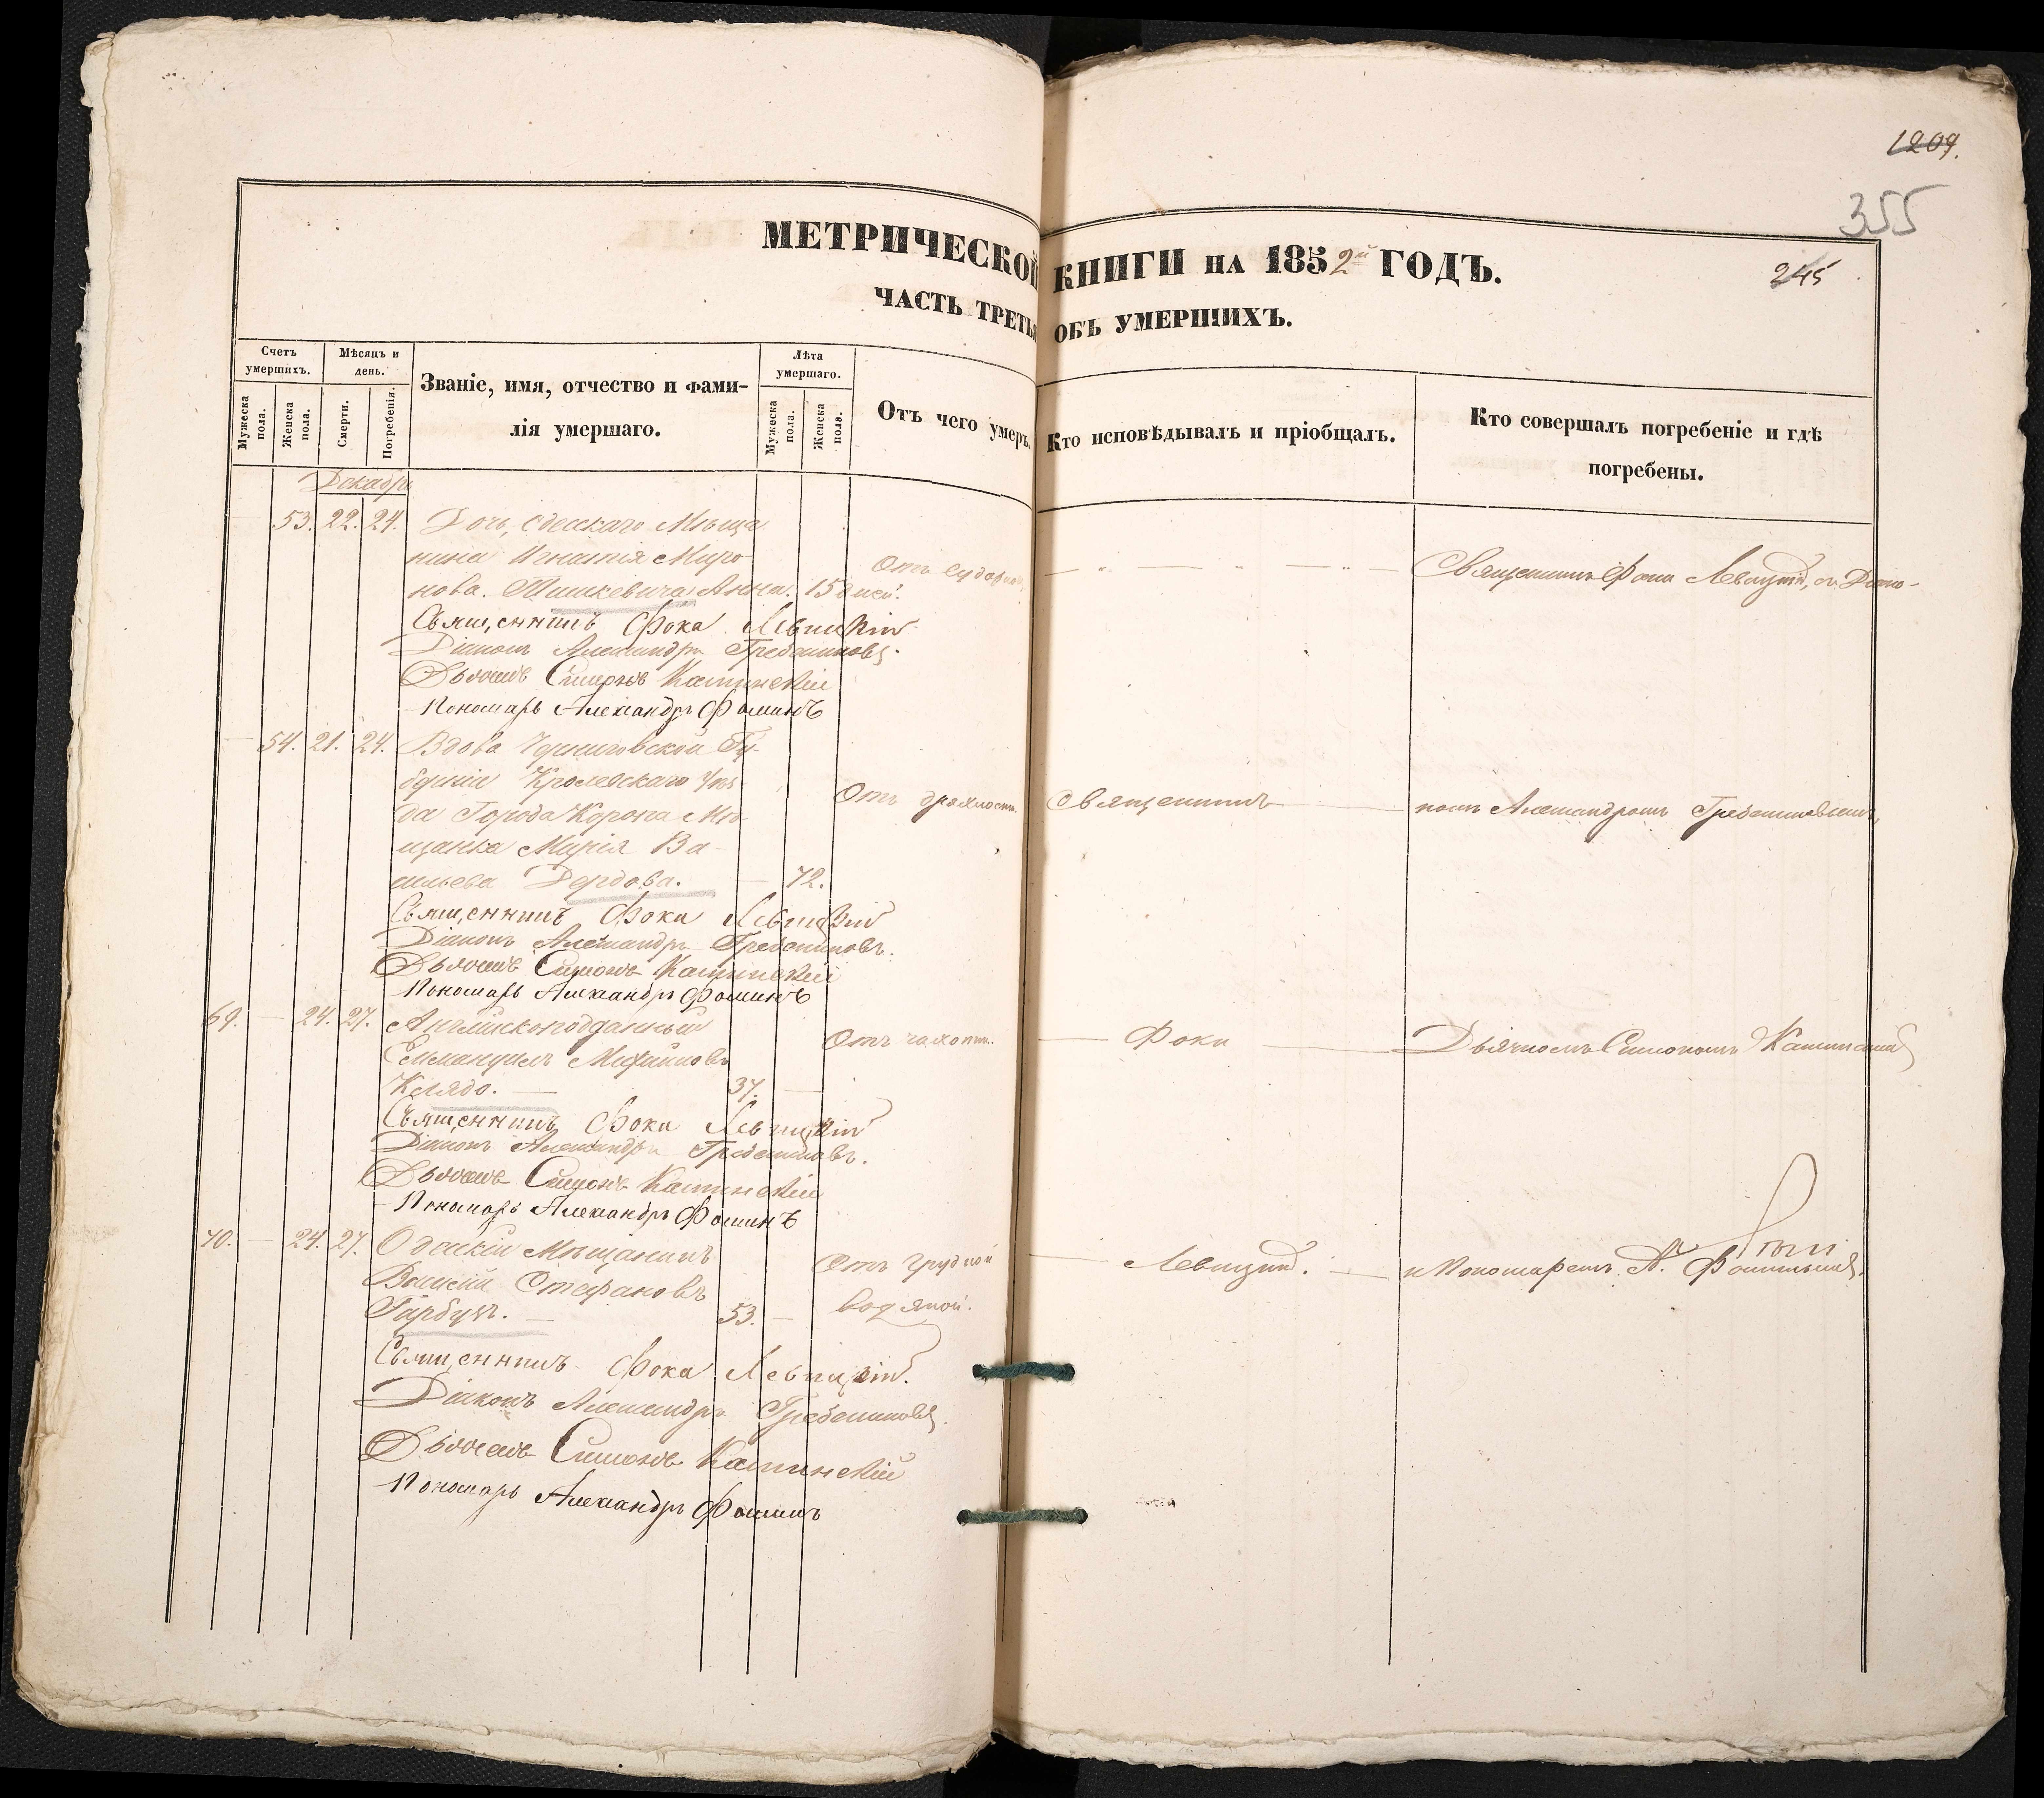 1209.
355
МЕТРИЧЕСКОЙ КНИГИ НА 1852й ГОДЪ.
245
ЧАСТЬ ТРЕТЬЯ ОБЪ УМЕРШИХЪ.
Счетъ умершихъ.
Мѣсяцъ и день.
Званіе, имя, отчество и фами-
лія умершаго.
Лѣта умершаго.
Отъ чего умеръ.
Кто исповѣдывалъ и пріобщалъ.
Кто совершалъ погребеніе и гдѣ
погребены.
Мужеска пола.
Женска пола.
Смерти.
Погребенія.
Мужеска пола.
Женска пола.
Декабрь
53. 22. 24. Дочь, Одесскаго Мѣща
нина Игнатія Миро
нова. Мишкевича Анна. 15 дней.
Отъ
Священникъ Фока Левицкій, съ Діако-
Священникъ Фока Левицкій
Діаконъ Александръ Гребенниковъ.
Дьячекъ Симонъ Кашинскій
Пономарь Александръ Фоминъ
54. 21. 24. Вдова Черниговской Гу-
берніи Кролевскаго Уѣз
да Города Коропа Мѣ-
щанка Марія Ва-
сильева Дердова. 72.
Отъ дряхлости.
Священникъ
номъ Александромъ Гребенниковымъ,
Священникъ Фока Левицкій
Діаконъ Александръ Гребенниковъ.
Дьячекъ Симонъ Кашинскій
Пономарь Александръ Фоминъ
69. 24. 27. Англійскоподданный
Еммануилъ Михайловъ
Келядо. 37.
Отъ чахотки.
Фока
Дьячкомъ Симономъ Кашинскимъ
Священникъ Фока Левицкій
Діаконъ Александръ Гребенниковъ.
Дьячекъ Симонъ Кашинскій
Пономарь Александръ Фоминъ
70. 24. 27. Одесскій Мѣщанинъ
Василій Стефановъ
Гарбузъ. 53.
Отъ грудной
водяной.
Левицкій.
и Пономаремъ А. Фоминымъ.
Священникъ Фока Левицкій.
Діаконъ Александръ Гребенниковъ.
Дьячекъ Симонъ Кашинскій
Пономарь Александръ Фоминъ